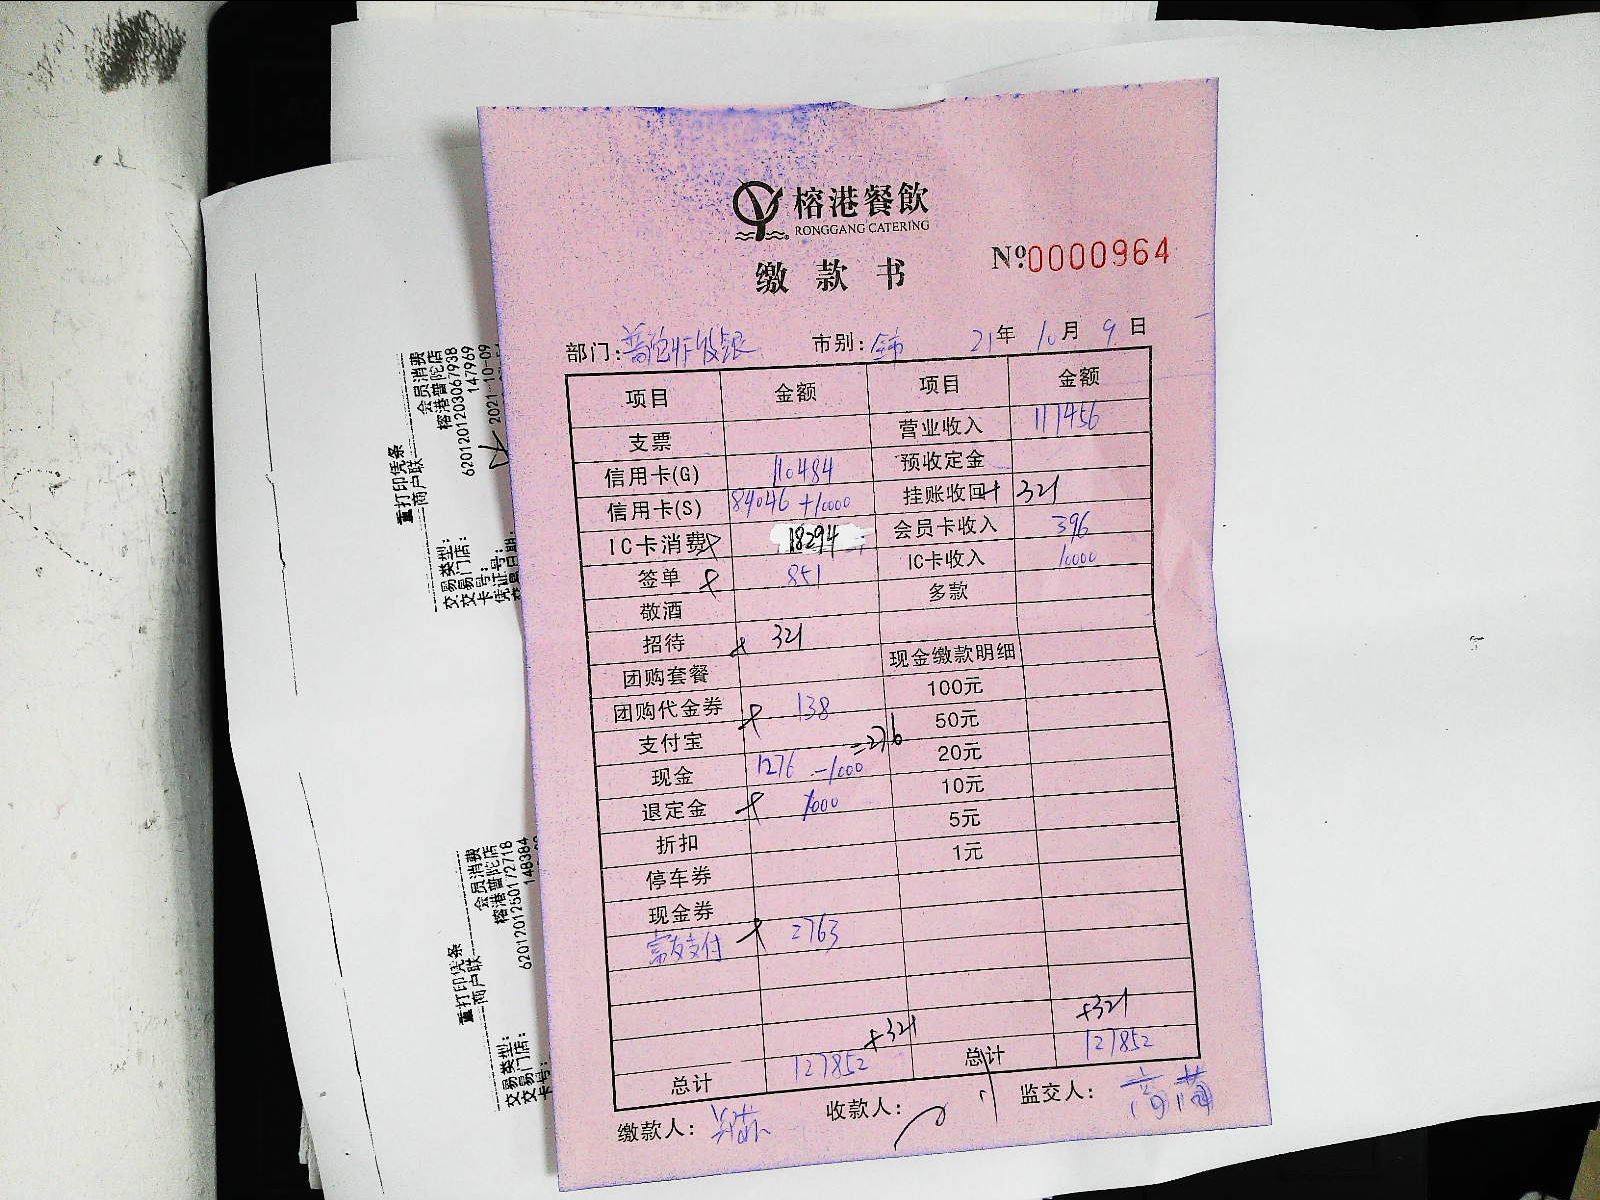 榕港餐飲
RONGGANG CATERING
缴款书
Nº0000964
部门: 市别: 21年10月9日
项目 金额 项目 金额
支票 营业收入 117456
信用卡(G) 110484 预收定金
信用卡(S) 84046 +10000 挂账收回+ 321
IC卡消费× 18294 会员卡收入 396
签单 × 851 IC卡收入 10000
敬酒 多款
招待 × 321
团购套餐 现金缴款明细
团购代金券 × 138 100元
支付宝 50元
现金 1276 -1000 =276 20元
退定金 × 1000 10元
折扣 5元
停车券 1元
现金券
支付 × 2763
+321 +321
总计 127852 总计 127852
缴款人: 收款人: 监交人:
重打印凭条
商户联
交易类型: 会员消费
交易门店: 榕港普陀店
卡号: 6201201203067938
凭证号: 147969
2021-10-09
重打印凭条
商户联
交易类型: 会员消费
交易门店: 榕港普陀店
卡号: 6201201250172718
148384